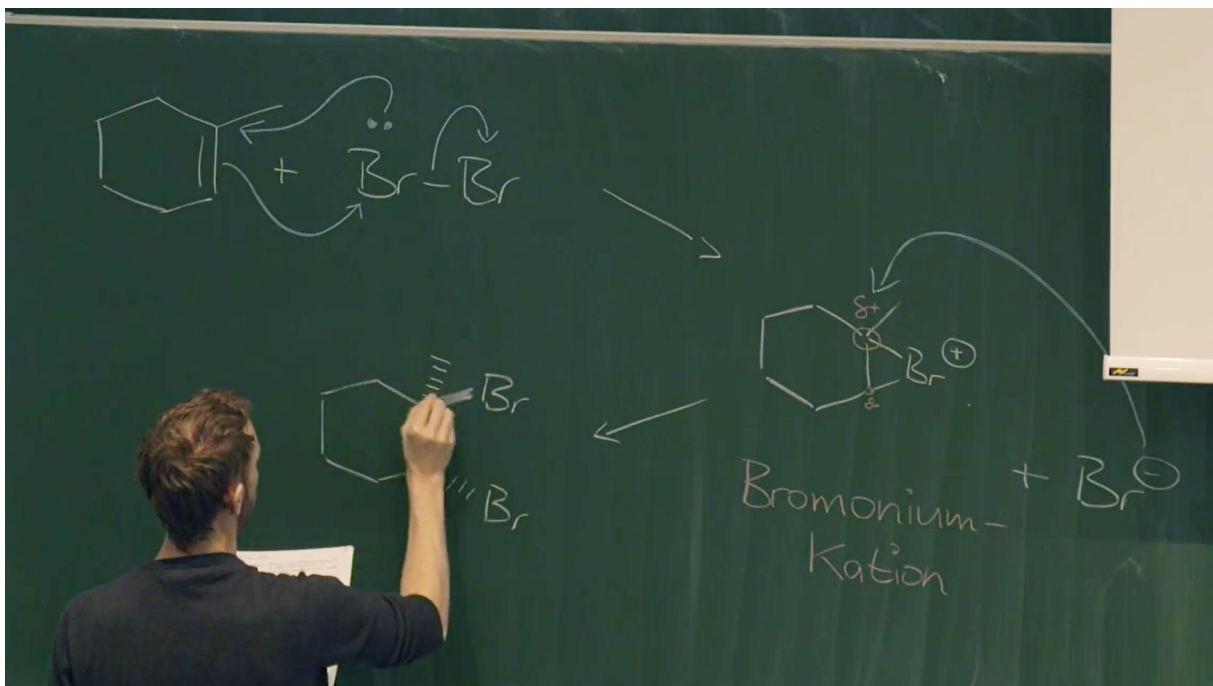 + Br - Br
δ+
Br +
Br
Br
+ Br -
Bromonium-
Kation